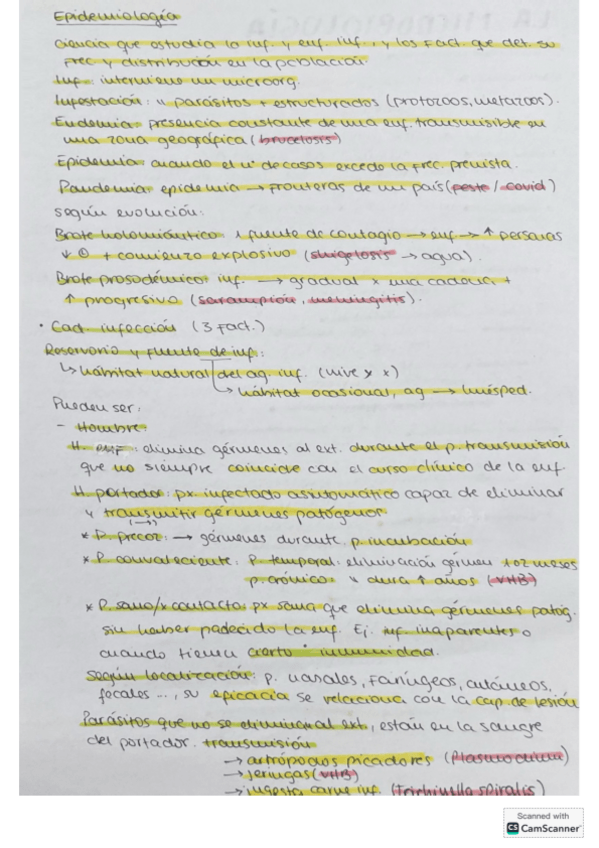 Epidemiología
Ciencia que estudia la inf. y enf. inf., y los fact. que det. su
frec. y distribución en la población
Inf.: interviene un microorg.
Infestación: " parásitos + estructurados (protozoos, metazoos).
Endemia: presencia constante de una enf. transmisible en
una zona geográfica (brucelosis)
Epidemia: cuando el nº de casos excede la frec. prevista.
Pandemia: epidemia → fronteras de un país (peste / covid)
según evolución:
Brote holomiántico: 1 fuente de contagio → enf → ↑ personas
+ comienzo explosivo (shigelosis → agua).
Brote prosodémico: inf. → gradual x una cadena +
↑ progresivo (sarampión, meningitis).
· Cad. infección (3 Fact.)
Reservorio y fuente de inf:
↳ hábitat natural del ag. inf. (vive y x)
↳ hábitat ocasional, ag → huésped.
Pueden ser:
- Hombre:
H. enf: elimina gérmenes al ext. durante el p. transmisión
que no siempre coincide con el curso clínico de la enf.
H. portador: px infectado asintomático capaz de eliminar
y transmitir gérmenes patógenos
* P. precoz: → gérmenes durante p. incubación
* P. convaleciente: P. temporal: eliminación gérmen 1 o 2 meses
p. crónico: " dura ↑ años (VHB)
* P. sano/x contacto: px sana que elimina gérmenes patóg.
sin haber padecido la enf. Ej. inf. inaparentes o
cuando tienen cierto inmunidad.
según localización: p. nasales, faríngeos, cutáneos,
fecales ..., su eficacia se relaciona con la cap. de lesión
Parásitos que no se eliminan al ext, están en la sangre
del portador. transmisión
→ artrópodos picadores (Plasmodium)
→ jeringas (VHB)
→ ingesta carne inf. (Trichinella spiralis)
Scanned with
CS CamScanner